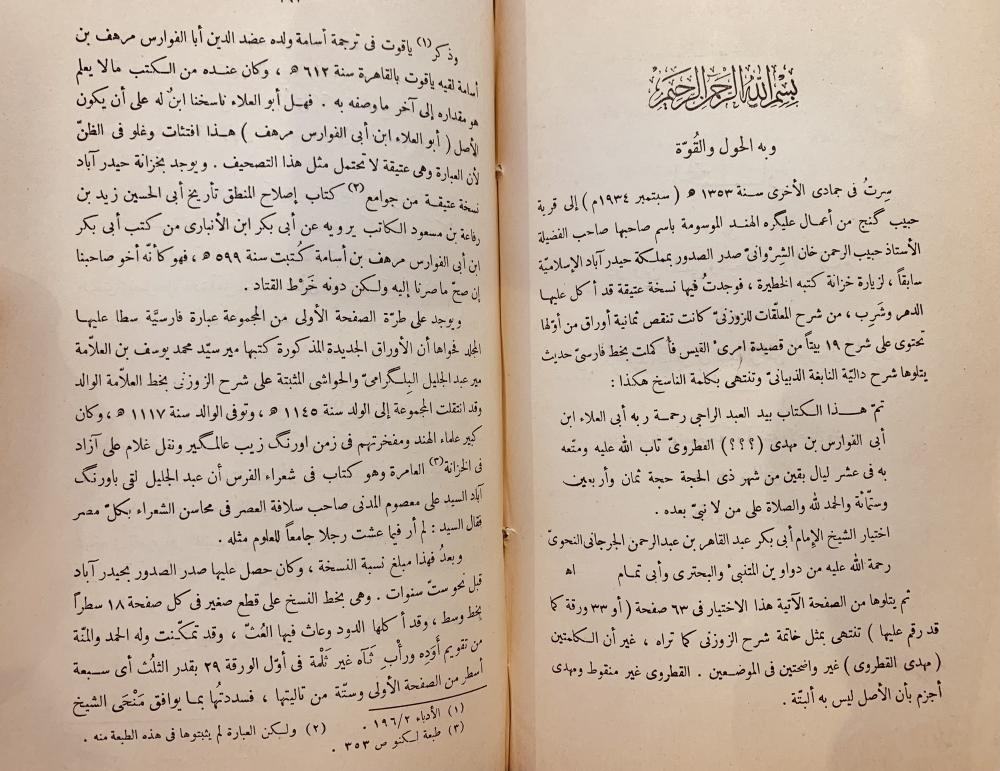 بسم الله الرحمن الرحيم
وبه الحول والقُوّة
سِرتُ فى جمادى الأخرى سنة ١٣٥٣ ﻫ ( سبتمبر ١٩٣٤م ) إلى قرية
حبيب گنج من أعمال عليگره الهند الموسومة باسم صاحبها صاحب الفضيلة
الأستاذ حبيب الرحمن خان الشِرْوانىّ صدر الصدور بمملكة حيدر آباد الإسلاميّة
سابقاً ، لزيارة خزانة كتبه الخطيرة ، فوجدتُ فيها نسخة عتيقة قد أكل عليها
الدهر وشَرِب ، من شرح المعلّقات للزوزنىّ كانت تنقص ثمانية أوراق من أوّلها
تحتوى على شرح ١٩ بيتاً من قصيدة امرئ القيس فأكملت بخط فارسىّ حديث
يتلوها شرح داليّة النابغة الذبيانىّ وتنتهى بكلمة الناسخ هكذا :
تمّ هذا الكتاب بيد العبد الراجى رحمة ربه أبى العلاء ابن
أبى الفوارس بن مهدى (؟؟؟) القطروىّ تاب الله عليه ومتّعه
به فى عشر ليال بقين من شهر ذى الحجة حجة ثمان وأربعين
وستّمائة والحمد لله والصلاة على من لا نبىّ بعده .
اختيار الشيخ الإمام أبى بكر عبد القاهر بن عبدالرحمن الجرجانى النحوىّ
رحمة الله عليه من دواوين المتنبىّ والبحترى وأبى تمام اﻫ
ثم يتلوها من الصفحة الآتية هذا الاختيار فى ٦٣ صفحة ( أو ٣٣ ورقة كما
قد رقم عليها ) تنتهى بمثل خاتمة شرح الزوزنى كما تراه ، غير أن الكلمتين
( مهدى القطروى ) غير واضحتين فى الموضعين . القطروى غير منقوط ومهدى
أجزم بأن الأصل ليس به ألبتّة .
وذكر(١) ياقوت فى ترجمة أسامة ولده عضد الدين أبا الفوارس مرهف بن
أسامة لقيه ياقوت بالقاهرة سنة ٦١٢ ﻫ ، وكان عنده من الكتب مالا يعلم
هو مقداره إلى آخر ما وصفه به . فهل أبو العلاء ناسخنا ابنٌ له على أن يكون
الأصل ( أبو العلاء ابن أبى الفوارس مرهف ) هذا افتئات وغلو فى الظنّ
لأن العبارة وهى عتيقة لا تحتمل مثل هذا التصحيف . ويوجد بخزانة حيدر آباد
نسخة عتيقة من جوامع(٢) كتاب إصلاح المنطق تأريخ أبى الحسين زيد بن
رفاعة بن مسعود الكاتب يرويه عن أبى بكر ابن الأنبارى من كتب أبى بكر
ابن أبى الفوارس مرهف بن أسامة كُتبت سنة ٥٩٩ ﻫ ، فهو كأنّه أخو صاحبنا
إن صحّ ما صرنا إليه ولكن دونه خَرْط القتاد .
ويوجد على طرّة الصفحة الأولى من المجموعة عبارة فارسيّة سطا عليها
المجلد فحواها أن الأوراق الجديدة المذكورة كتبها مير سيّد محمد يوسف بن العلاّمة
مير عبد الجليل البِلگرامىّ والحواشى المثبتة على شرح الزوزنى بخط العلاّمة الوالد
وقد انتقلت المجموعة إلى الولد سنة ١١٤٥ ﻫ ، وتوفى الوالد سنة ١١١٧ ﻫ ، وكان
كبير علماء الهند ومفخرتهم فى زمن اورنگ زيب عالمگير ونقل غلام على آزاد
فى الخزانة(٣) العامرة وهو كتاب فى شعراء الفرس أن عبد الجليل لقى باورنگ
آباد السيد على معصوم المدنى صاحب سلافة العصر فى محاسن الشعراء بكلّ مصر
فقال السيد : لم أر فيما عشت رجلا جامعاً للعلوم مثله .
وبعدُ فهذا مبلغ نسبة النسخة ، وكان حصل عليها صدر الصدور بحيدر آباد
قبل نحو ستّ سنوات . وهى بخط النسخ على قطع صغير فى كل صفحة ١٨ سطراً
بخط وسط ، وقد أكلها الدود وعاث فيها العُثّ ، وقد تمكّنت وله الحمد والمنّة
من تقويم أَوَده ورأْبِ ثَآه غير ثَلْمة فى أوّل الورقة ٢٩ بقدر الثلُث أى سبعة
أسطر من الصفحة الأولى وستّة من تاليتها ، فسددتُها بما يوافق مَنْحَى الشيخ
(١) الأدباء ١٩٦/٢ . (٢) ولكن العبارة لم يثبتوها فى هذه الطبعة منه .
(٣) طبعة لسكنو ص ٣٥٣ .